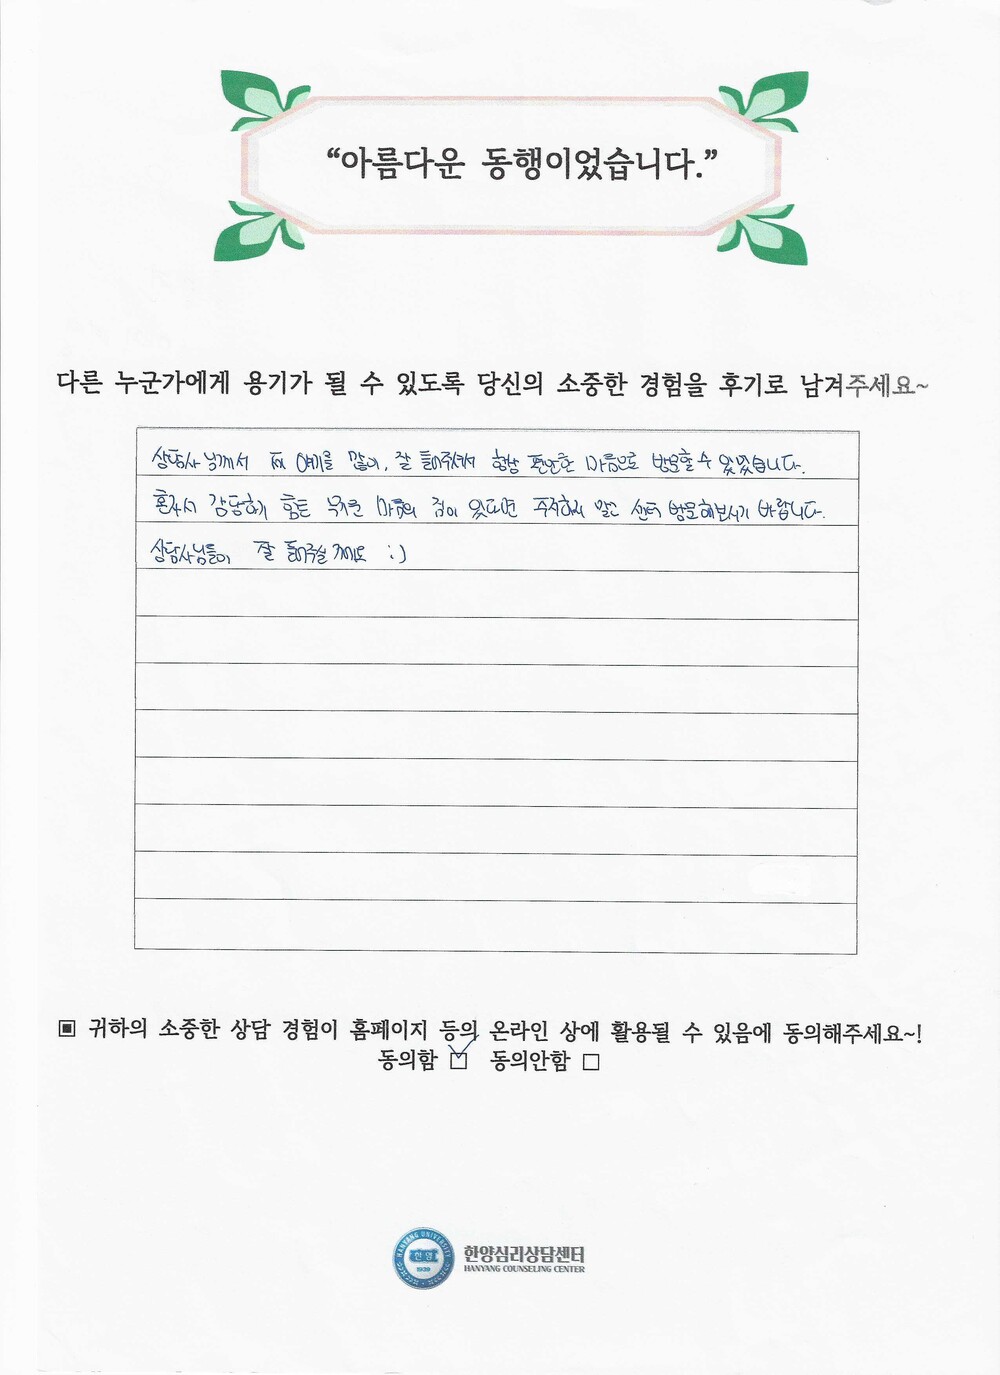 “아름다운 동행이었습니다.”
다른 누군가에게 용기가 될 수 있도록 당신의 소중한 경험을 후기로 남겨주세요~
상담사님께서 제 얘기를 많이, 잘 들어주셔서 항상 편안한 마음으로 방문할 수 있었습니다.
혼자서 감당하기 힘든 무거운 마음의 짐이 있다면 주저하지 말고 센터 방문해보시기 바랍니다.
상담사님들이 잘 들어주실 거에요 :)
▣ 귀하의 소중한 상담 경험이 홈페이지 등의 온라인 상에 활용될 수 있음에 동의해주세요~!
동의함 ☑ 동의안함 □
HANYANG UNIVERSITY
한양
1939
한양심리상담센터
HANYANG COUNSELING CENTER